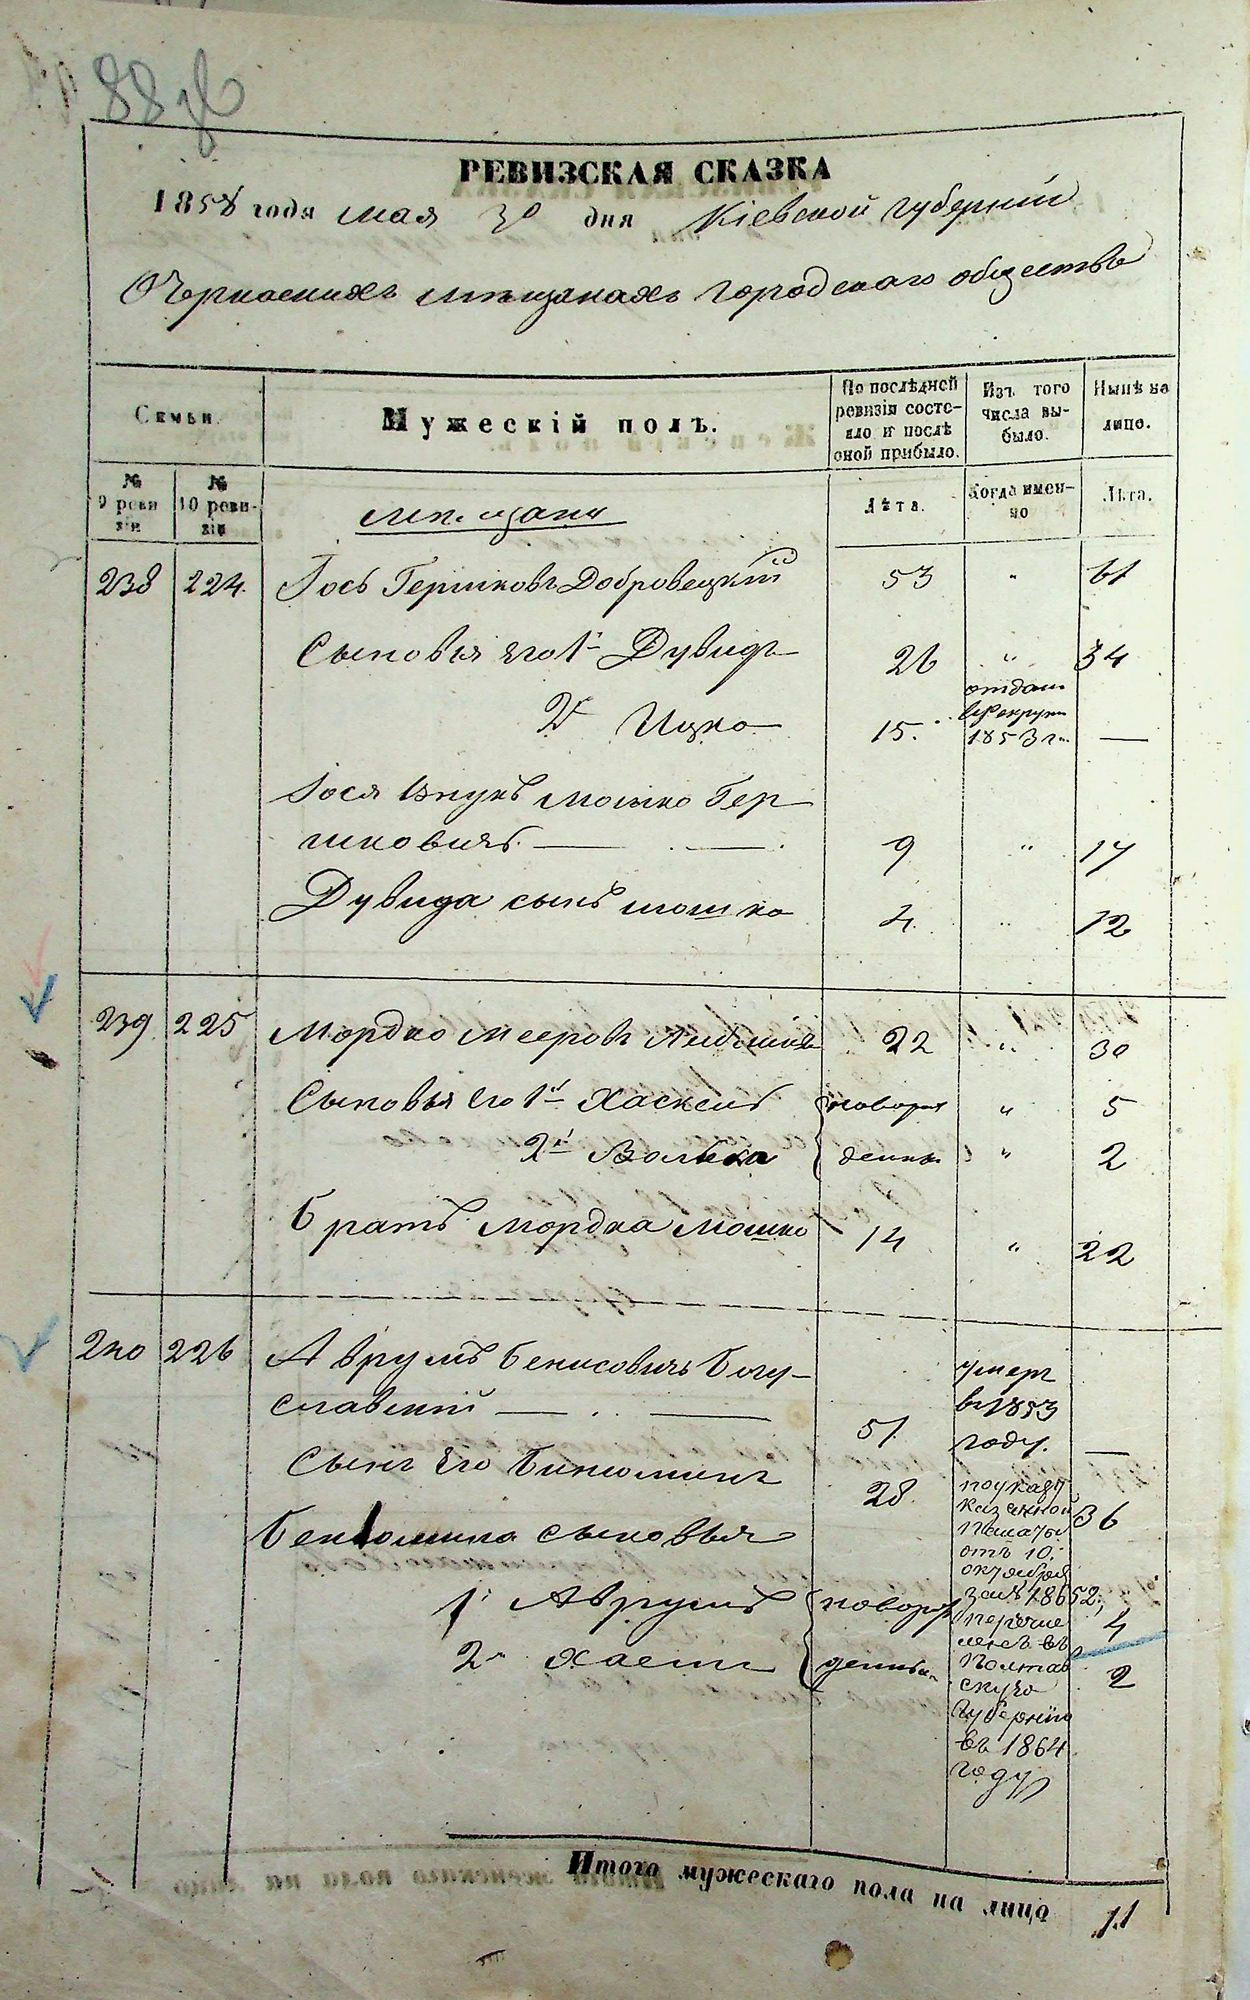 88
РЕВИЗСКАЯ СКАЗКА
1858 года мая 30 дня Кіевской губерніи
О Черкаскихъ мѣщанахъ городскаго общества
Семьи.
Мужескій полъ.
По послѣдней ревизіи состояло и послѣ оной прибыло.
Изъ того числа выбыло.
Нынѣ на лицо.
№ 9 ревизіи
№ 10 ревизіи
мѣщани
Лѣта.
Когда именно
Лѣта.
238 224 Іось Гершковъ Добровецкій 53 " 61
Сыновья его 1й Дувидъ 26 " 34
2й Ицко 15. отданъ в рекруты 1853 г. —
Іося внукъ Мошко Гер-
шковичъ. — — 9 " 17
Дувида сынъ Мошко 4. " 12
239 225 Мордко Мееровъ 22 " 30
Сыновья его 1й Хаскель новорож " 5
2й Волька денны " 2
Братъ Мордка Мошко 14 " 22
240 226 Аврумъ Бенисовичъ Богу-
славскій — — 51. умеръ въ 1853 году. —
Сынъ его Биніоминъ 28. 36
по указу
казенной
Палаты
отъ 10.
октября
за № 18652,
перечис
ленъ въ
Полтав
скую
Губернію
въ 1864
году
Беніомина сыновья
1й Аврумъ новорож 4
2й денны 2
Итого мужескаго пола на лицо 11